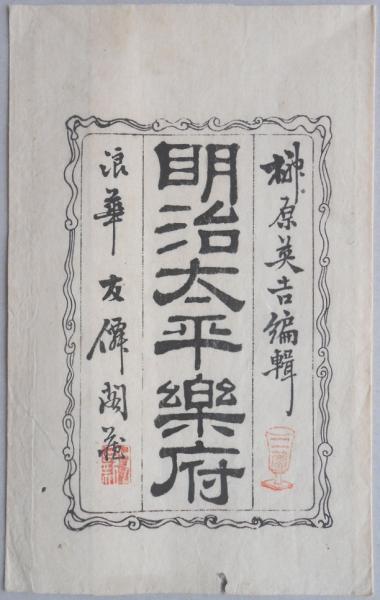 榊原英吉編輯
明治太平樂府
浪華 友僊閣藏